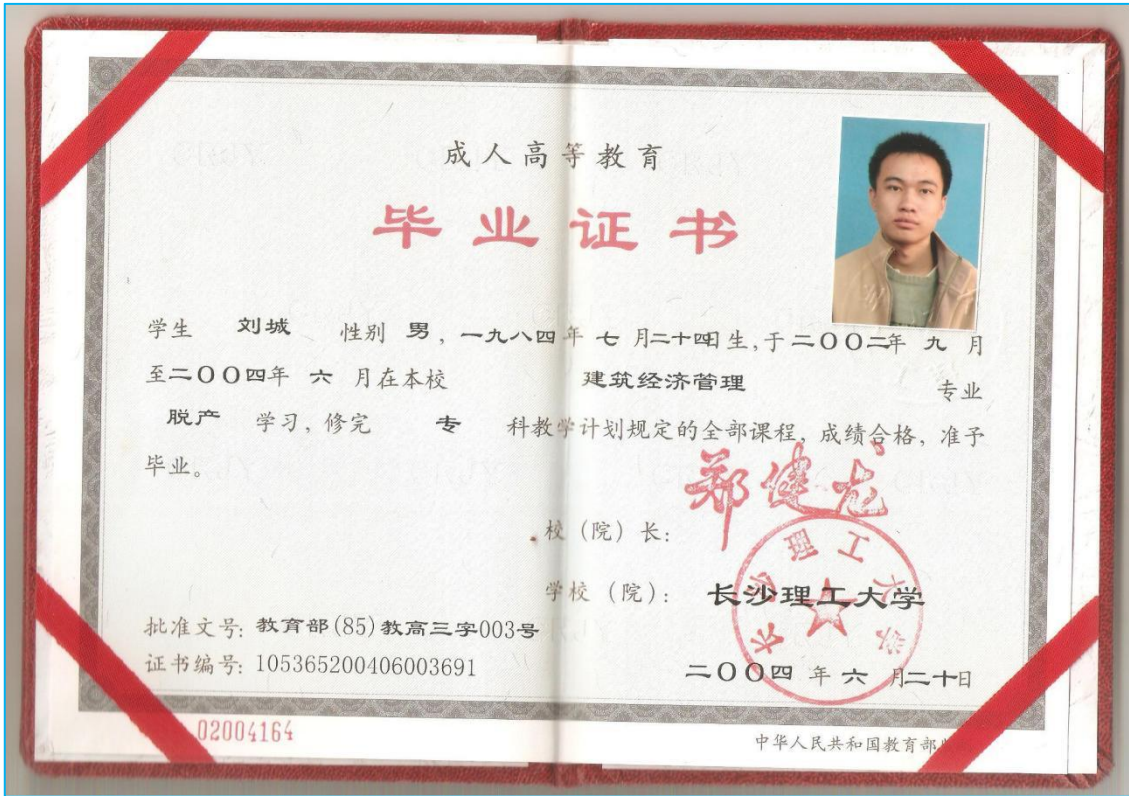 成人高等教育
毕业证书
学生 刘城 性别 男，一九八四年 七 月二十四日生，于二〇〇二年 九 月
至二〇〇四年 六 月在本校 建筑经济管理 专业
脱产 学习，修完 专 科教学计划规定的全部课程，成绩合格，准予
毕业。
郑健龙
校（院）长：
学校（院）：长沙理工大学
长沙理工大学
批准文号：教育部(85)教高三字003号
证书编号：105365200406003691
二〇〇四 年 六 月二十日
02004164
中华人民共和国教育部